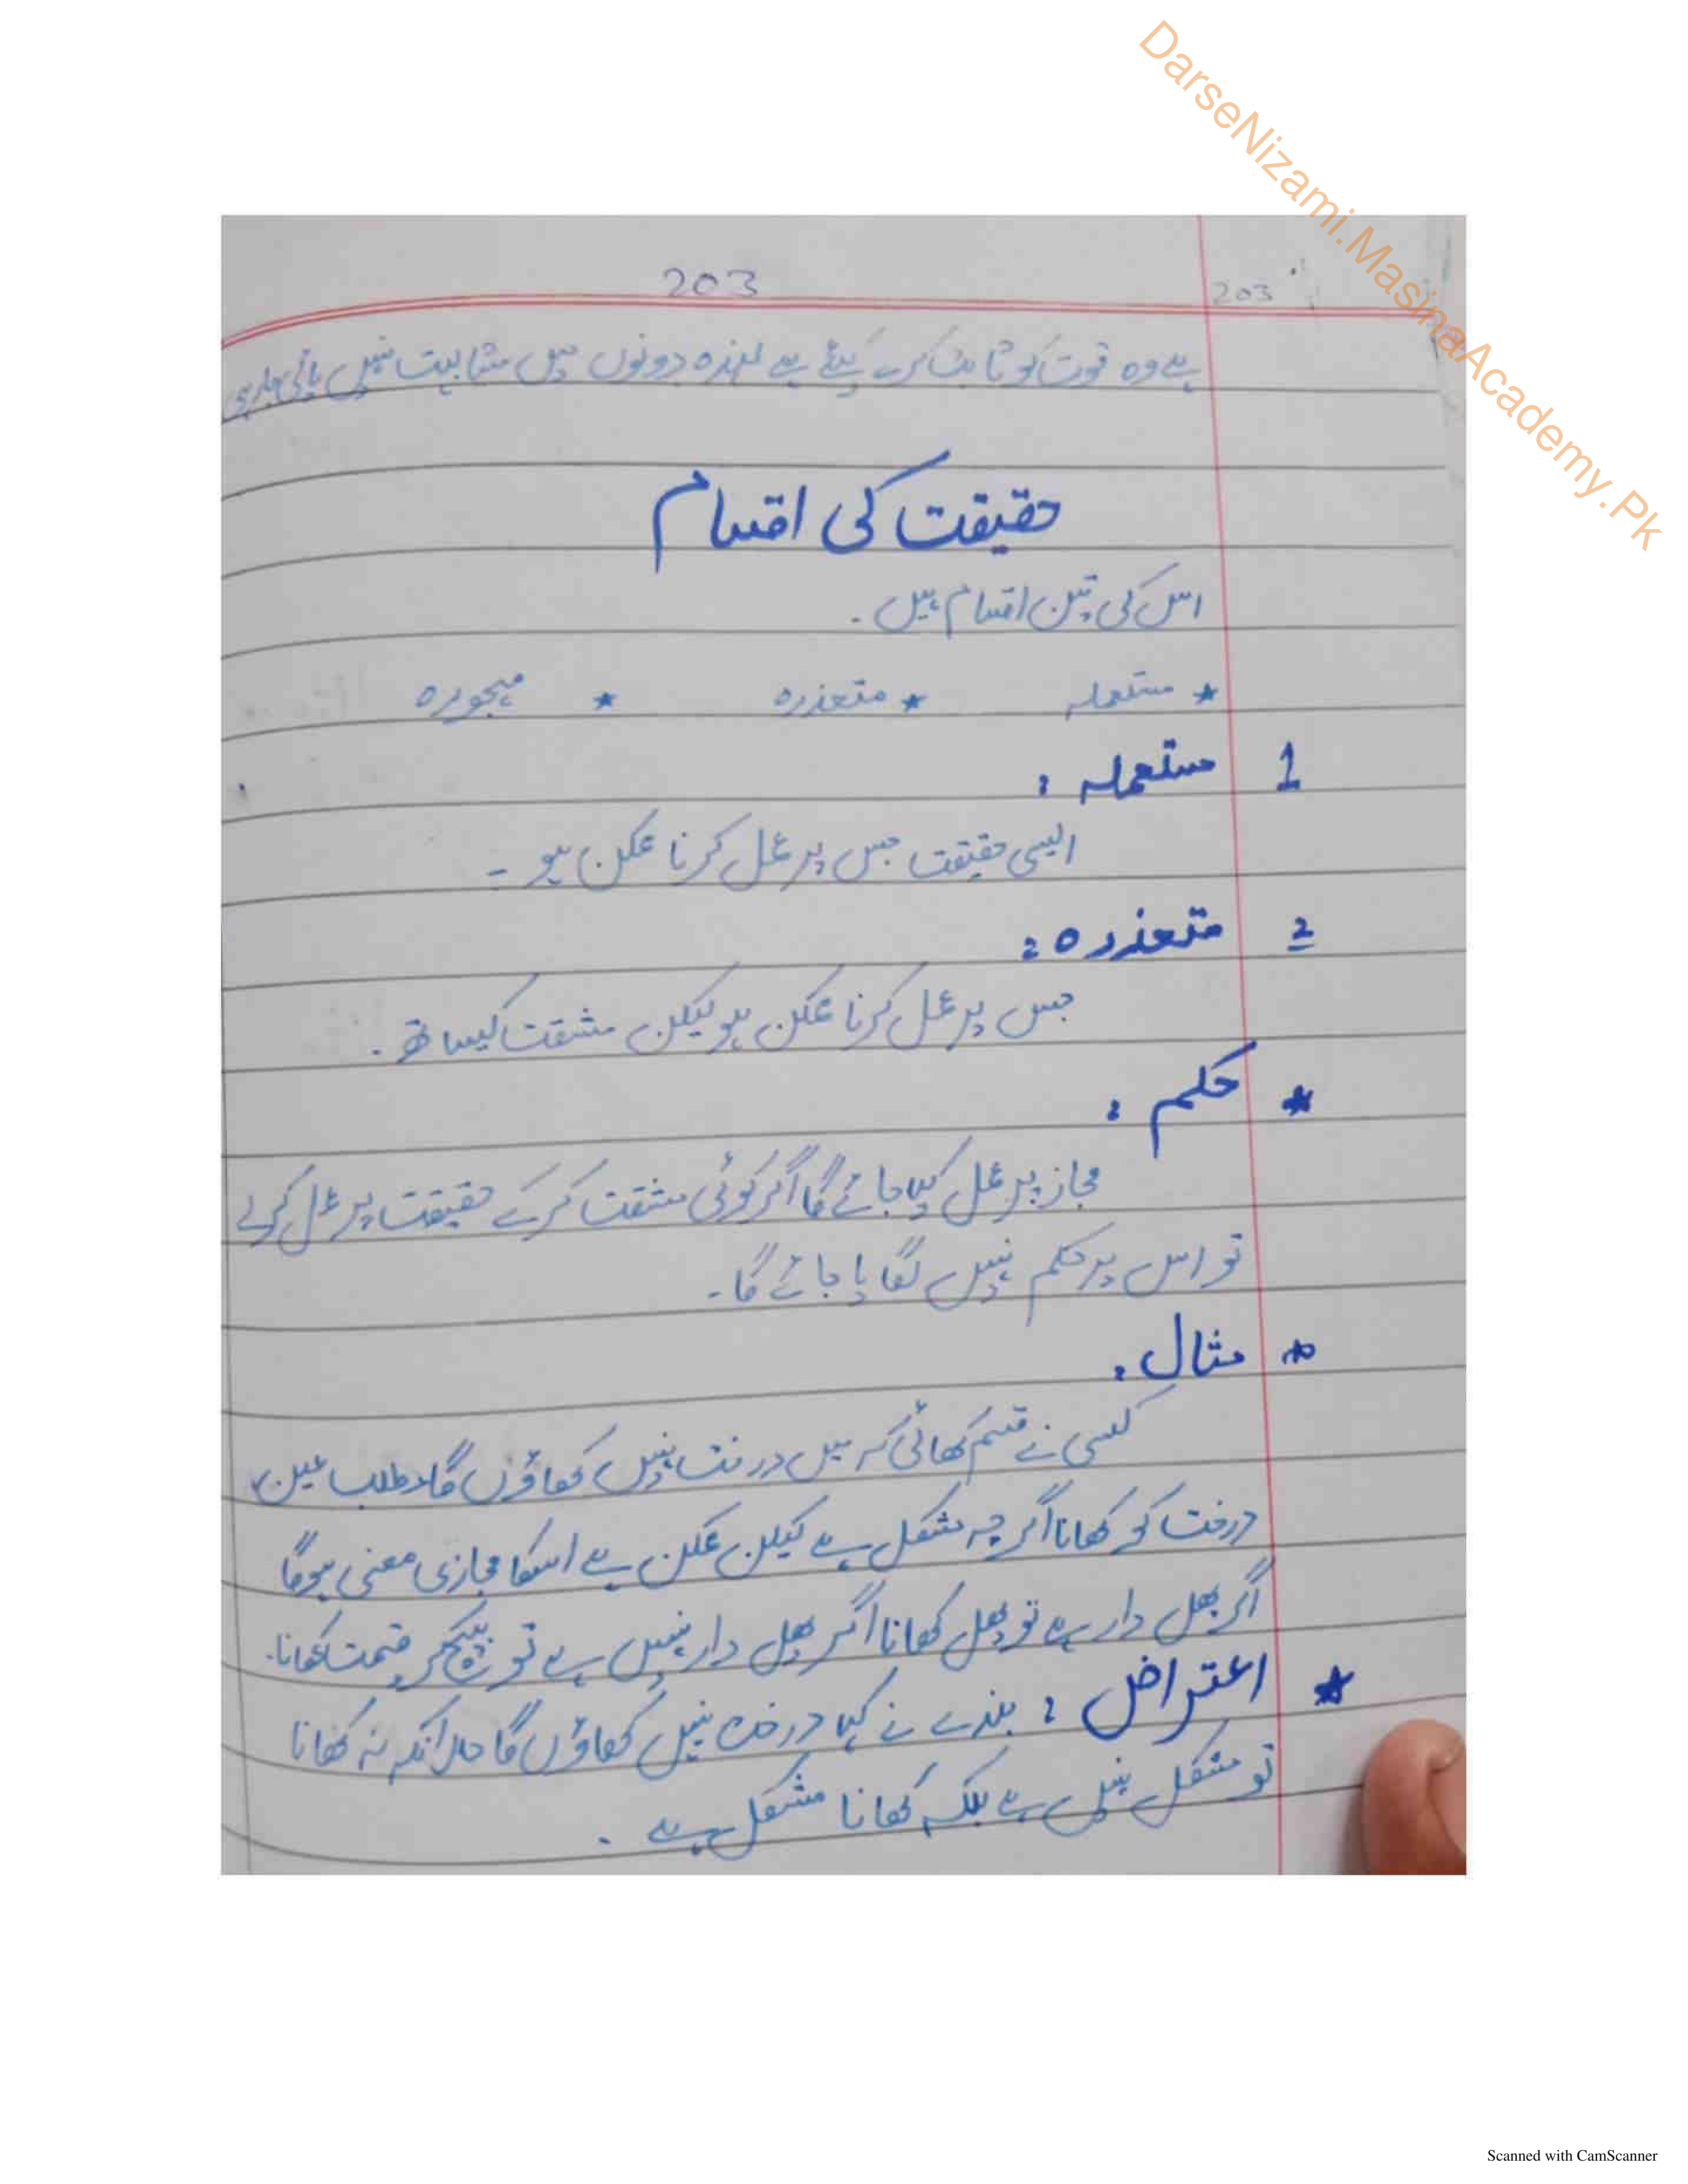 DarseNizami.MasinaAcademy.Pk
203
203
ہے وہ قوت کو ثابت کرنے کیلئے ہے لہذہ دونوں میں مشابہت نہیں پائی جارہی
حقیقت کی اقسام
اس کی تین اقسام ہیں ۔
★ مستعملہ ★ متعذرہ ★ مہجورہ
1 مستعملہ :
ایسی حقیقت جس پر عمل کرنا ممکن ہو ۔
2 متعذرہ :
جس پر عمل کرنا ممکن ہو لیکن مشقت کیساتھ ۔
★ حکم :
مجاز پر عمل کیا جائے گا اگر کوئی مشقت کرکے حقیقت پر عمل کرلے
تو اس پر حکم نہیں لگایا جائے گا ۔
★ مثال :
کسی نے قسم کھائی کہ میں درخت نہیں کھاؤں گا مطلب عین
درخت کو کھانا اگرچہ مشکل ہے لیکن ممکن ہے اسکا مجازی معنی ہوگا
اگر پھل دار ہے تو پھل کھانا اگر پھل دار نہیں ہے تو بیچ کر قیمت کھانا ۔
★ اعتراض : بندے نے کہا درخت نہیں کھاؤں گا حالانکہ نہ کھانا
تو مشکل نہیں ہے بلکہ کھانا مشکل ہے ۔
Scanned with CamScanner